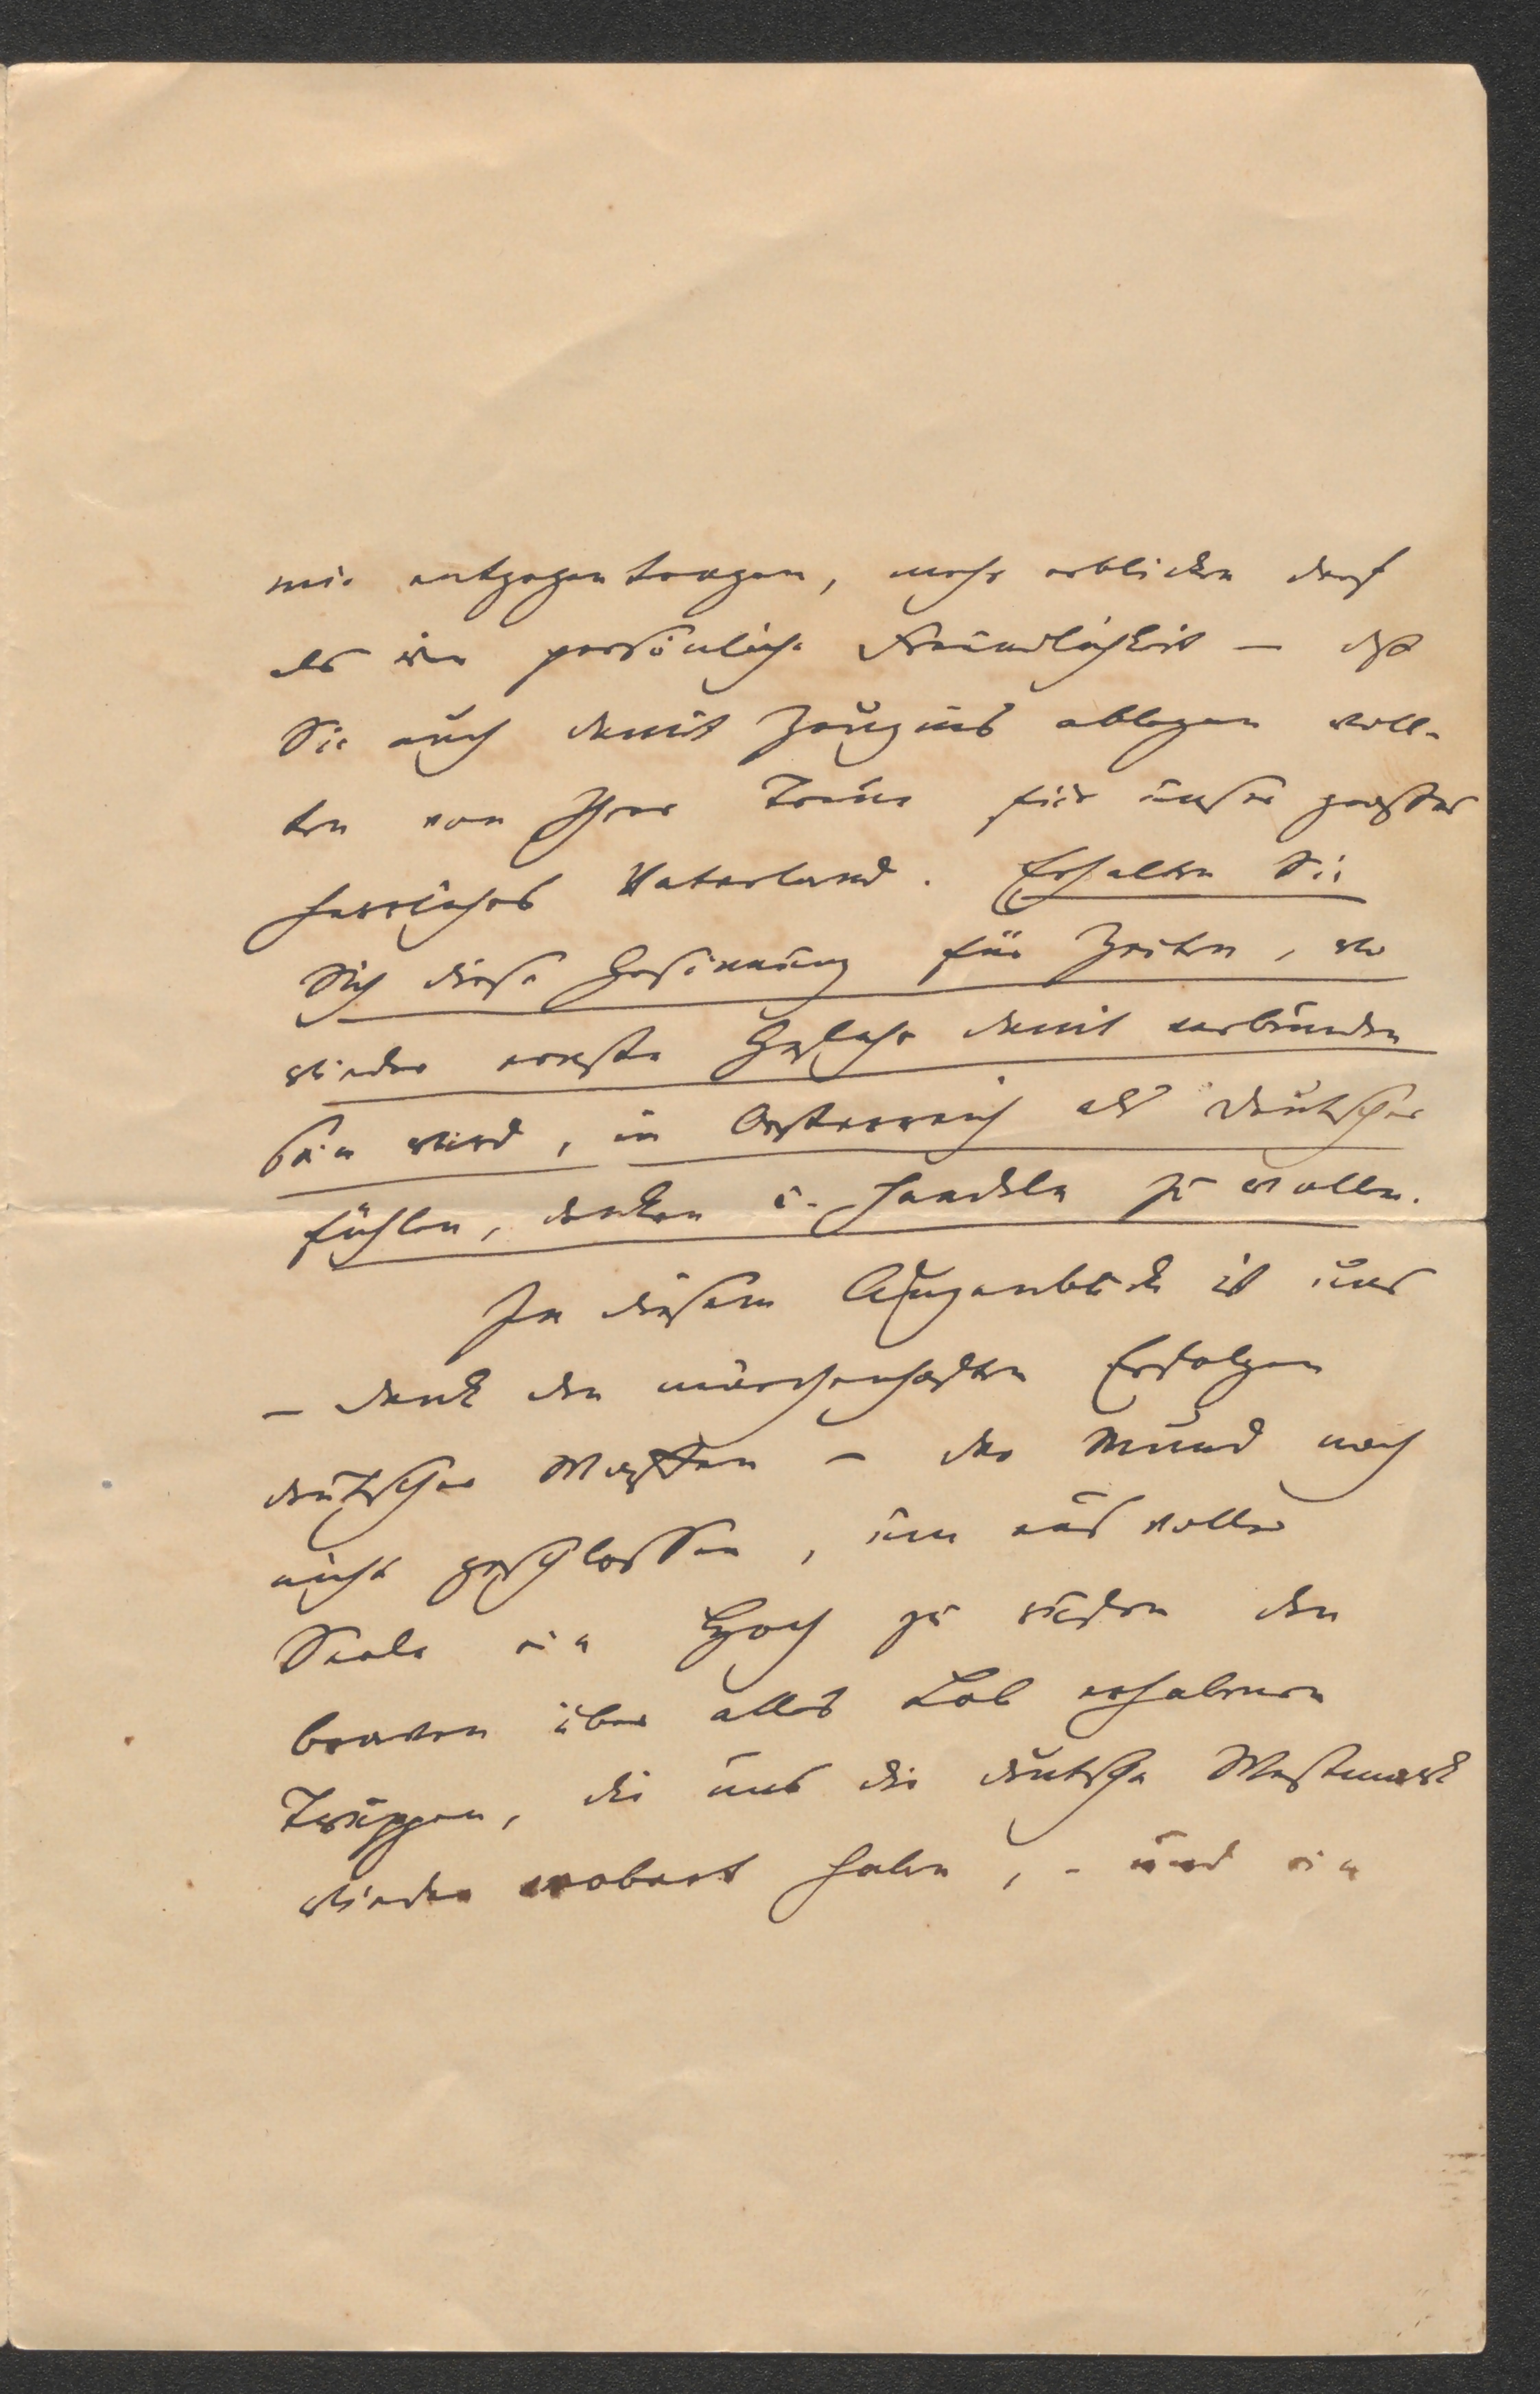 mir entgegentragen, mehr erblicken darf
als eine persönliche Freundlichkeit – daß
Sie auch damit Zeugnis ablegen woll-
ten von Ihrer Treue für unser großes
herrliches Vaterland. Erhalten Sie
Sich diese Gesinnung für Zeiten, wo
wieder ernste Gefahr damit verbunden
sein wird, in Oesterreich als Deutscher
fühlen, denken u. handeln zu wollen.
In diesem Augenblick ist uns
– dank den märchenhaften Erfolgen
deutscher Waffen – der Mund noch
nicht geschlossen, um aus voller
Seele ein Hoch zu rufen den
braven über alles Lob erhabenen
Truppen, die uns die deutsche Westmark
wieder erobert haben, – und ein